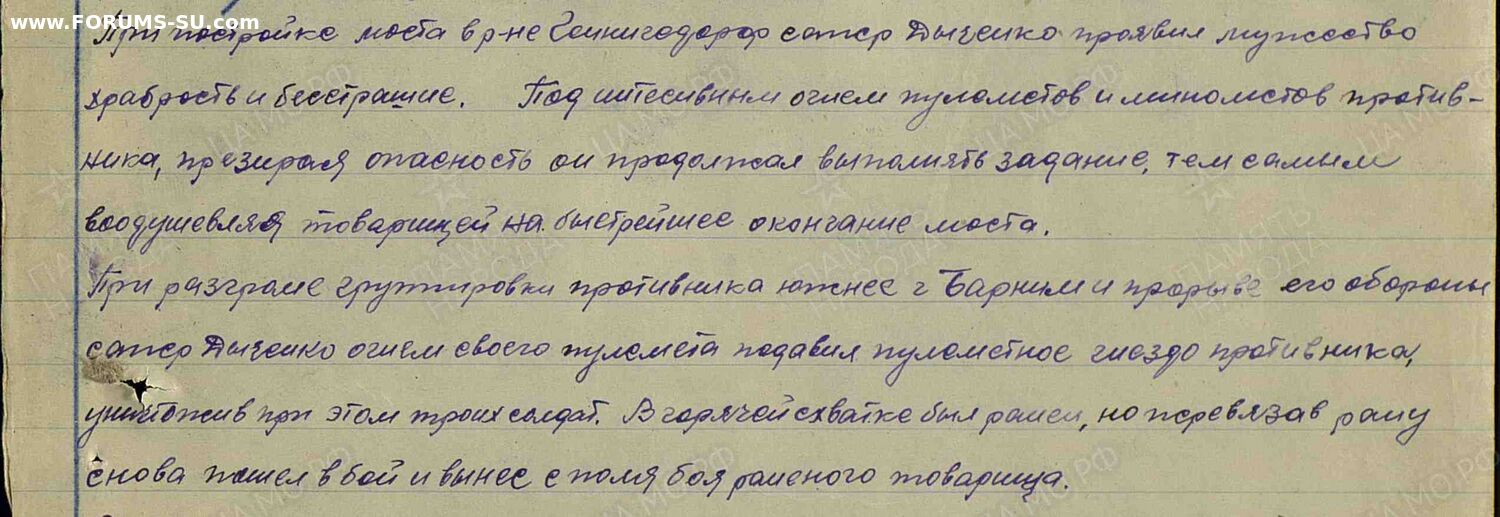 www.FORUMS-SU.com
При постройке моста в р-не Геннигсдорф сапер Дыченко проявил мужество
храбрость и бесстрашие. Под интесивным огнем пулеметов и минометов против-
ника, презирая опасность он продолжал выполнять задание, тем самым
воодушевляя товарищей на быстрейшее окончание моста.
При разгроме группировки противника южнее г Барним и прорыве его обороны
сапер Дыченко огнем своего пулемета подавил пулеметное гнездо противника,
уничтожив при этом троих солдат. В горячей схватке был ранен, но перевязав рану
снова пошел в бой и вынес с поля боя раненого товарища.